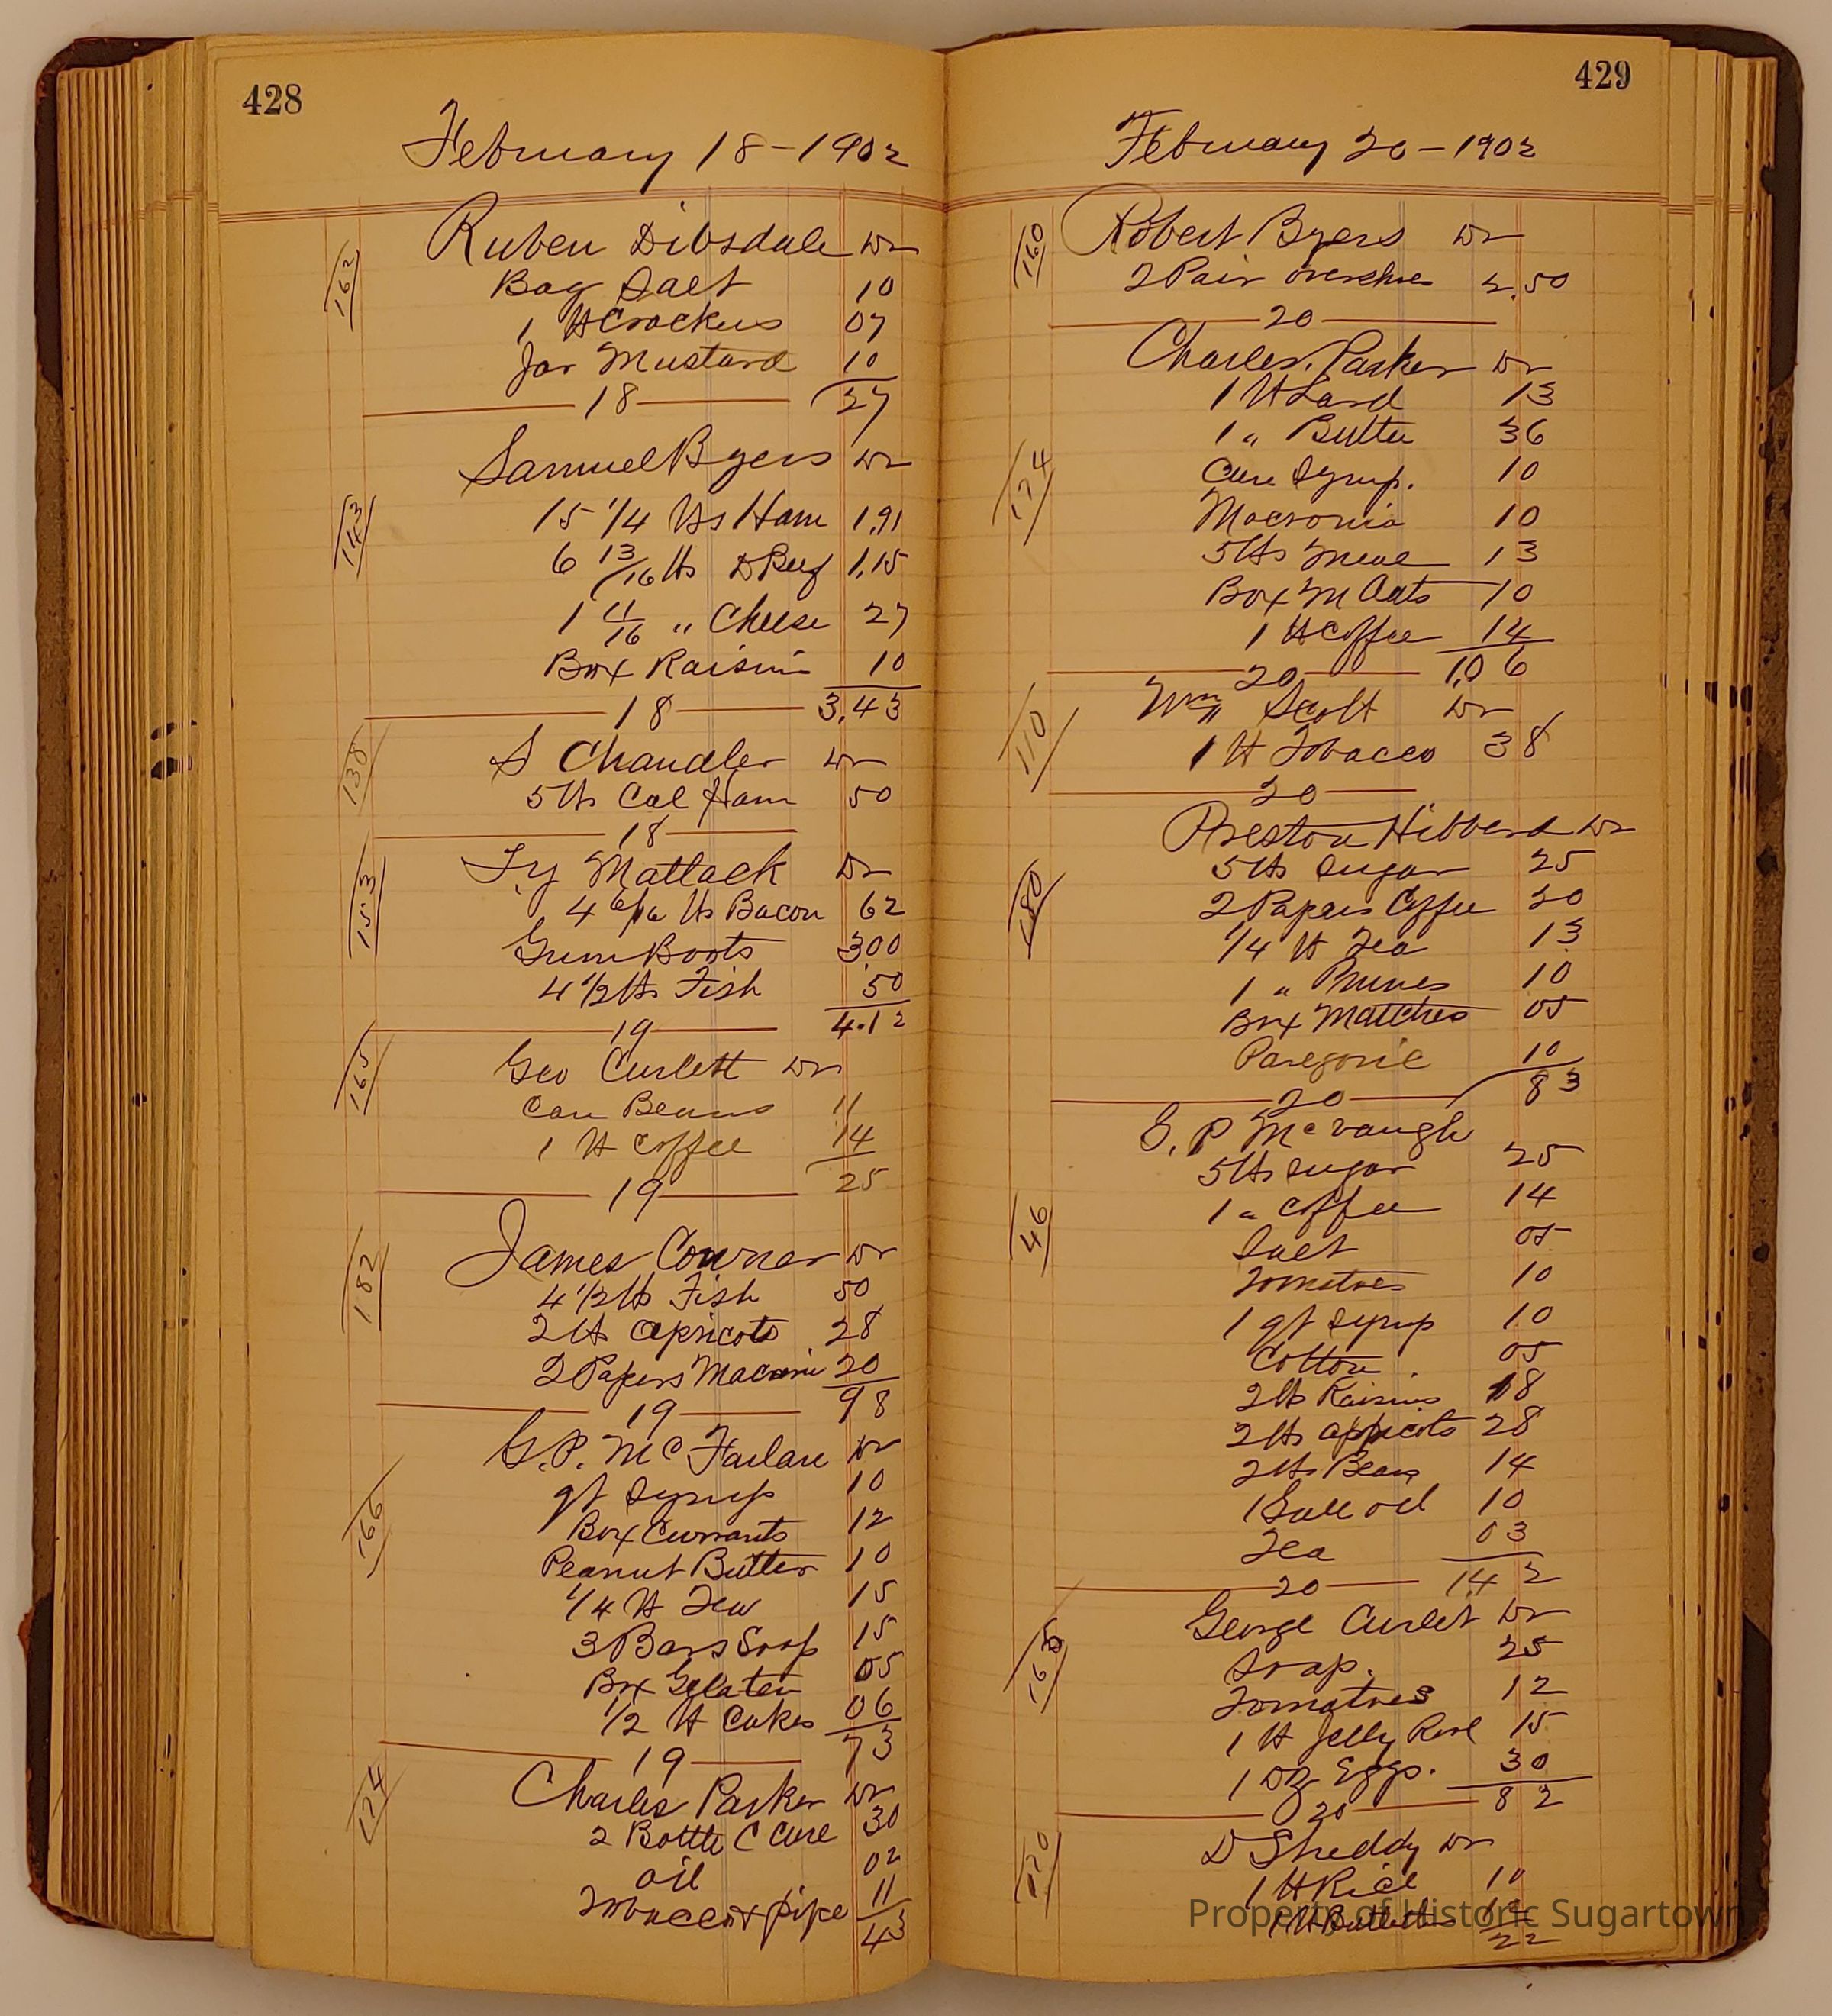 428
February 18-1902
162
Ruben Dibsdale Dr
Bag Salt 10
1 lb Crackers 07
Jar Mustard 10
18 27
Samuel Byers Dr
143
15 1/4 lbs Ham 1.91
6 13/16 lbs D Beef 1.15
1 11/16 " Cheese 27
Box Raisins 10
18 3.43
138
S Chandler Dr
5 lbs Cal Ham 50
18
153
Ty Matlack Dr
4 lbs Bacon 62
Gum Boots 300
4 1/2 lbs Fish 50
19 4.12
165
Geo Curlett Dr
Can Beans 11
1 lb Coffee 14
19 25
182
James Conner Dr
4 1/2 lbs Fish 50
2 lbs Apricots 28
2 Papers Macaroni 20
19 98
166
G.P. McFarlan Dr
qt Syrup 10
Box Currants 12
Peanut Butter 10
1/4 lb Tea 15
3 Bars Soap 15
Box Gelaten 05
1/2 lb Cakes 06
19 73
174
Charles Parker Dr
2 Bottle C Cure 30
oil 02
Tobacco & pipe 11
43
429
February 20-1902
160
Robert Byers Dr
2 Pair overshoes 2.50
20
Charles Parker Dr
1 lb Lard 13
1 " Butter 36
174
Syrup. 10
Macronia 10
5 lbs Meal 13
Box M Oats 10
1 lb Coffee 14
20 1.06
110
Wm Scott Dr
1 lb Tobacco 38
20
Preston Hibberd Dr
180
5 lbs Sugar 25
2 Papers Coffee 20
1/4 lb Tea 13
1 " Prunes 10
Box Matches 05
Paregoric 10
20 83
G. P McVaugh
5 lbs Sugar 25
46
1 " Coffee 14
Salt 05
Tomatoes 10
1 qt Syrup 10
Cotton 05
2 lb Raisins 18
2 lbs Appricots 28
2 lbs Beans 14
1 Gall oil 10
Tea 03
20 1.42
165
George Curlet Dr
Soap. 25
Tomatoes 12
1 lb Jelly Roll 15
1 Dz Eggs. 30
20 82
170
D Sheddy Dr
1 lb Rice 10
22
Property of Historic Sugartown